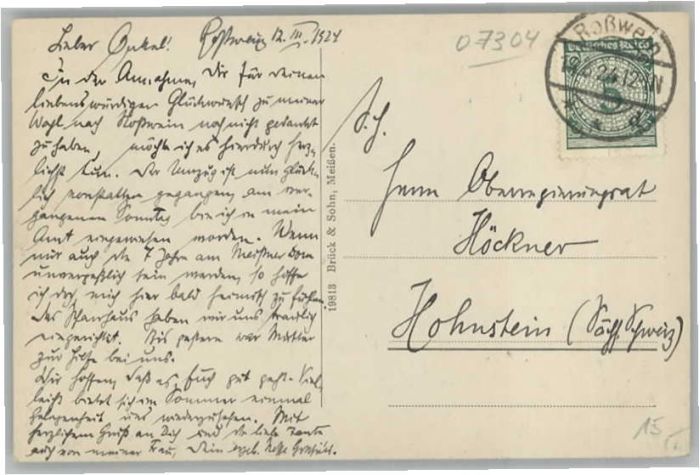 Lieber Onkel! Roßwein 12. III. 1924
In der Annahme, Dir für Deinen
liebenswürdigen Glückwunsch zu meiner
Wahl nach Roßwein noch nicht gedankt
zu haben, möchte ich es hierdurch herz-
lichst tun. Der Umzug ist nun glück-
lich vonstatten gegangen, am ver-
gangenen Sonntag bin ich in mein
Amt eingewiesen worden. Wenn
mir auch die 7 Jahre am Meißner Dom
unvergeßlich sein werden, so hoffe
ich doch, mich hier bald heimisch zu fühlen.
Das Pfarrhaus haben wir uns traulich
eingerichtet. Bis gestern war Mutter
zur Hilfe bei uns.
Wir hoffen, daß es Euch gut geht. Viel-
leicht bietet sich im Sommer einmal
Gelegenheit uns wiederzusehen. Mit
herzlichem Gruß an Dich und die liebe Tante
auch von meiner Frau, Dein Neffe
07304
Roßwein
Deutsches Reich
5
19813 Brück & Sohn, Meißen.
S. H.
Herrn Oberregierungsrat
Höckner
Hohnstein (Sächs. Schweiz)
15